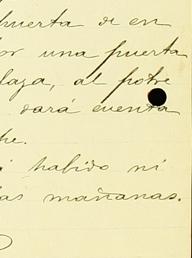 puerta de en
or una puerta
laza, al potre
dará cuenta
he.
habido ni
as mañanas.